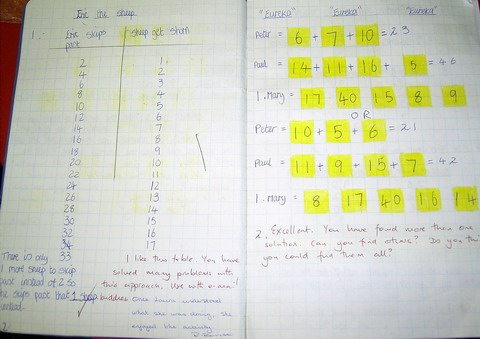 Eric the sheep.
1.
Eric skips past
sheep get shorn
2 1
4 2
6 3
8 4
10 5
12 6
14 7
16 8
18 9
20 10
22 11
24 12
26 13
28 14
30 15
32 16
34 17
33
There is only
1 more sheep to skip
past instead of 2 so
he skips past that 1 sheep
instead.
I like this table. You have
solved many problems with
this approach. Use with e-mail
buddies.
Once understood
what she was doing, she
enjoyed the activity.
2
"Eureka" "Eureka" "Eureka"
Peter = 6 + 7 + 10 = 23
Paul = 14 + 11 + 16 + 5 = 46
1. Mary = 17 40 15 8 9
OR
Peter = 10 + 5 + 6 = 21
Paul = 11 + 9 + 15 + 7 = 42
1. Mary = 8 17 40 16 14
2. Excellent. You have found more than one
solution. Can you find others? Do you think
you could find them all?